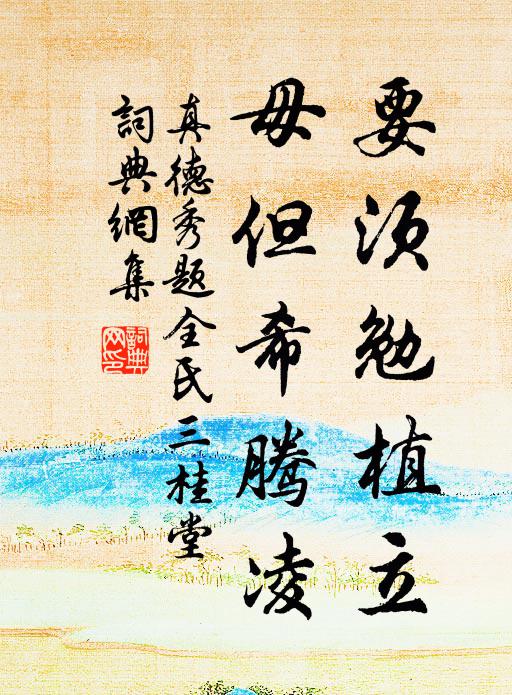 要须勉植立
毋但希腾凌
真德秀题全氏三桂堂
詞典網集
詞典
网印